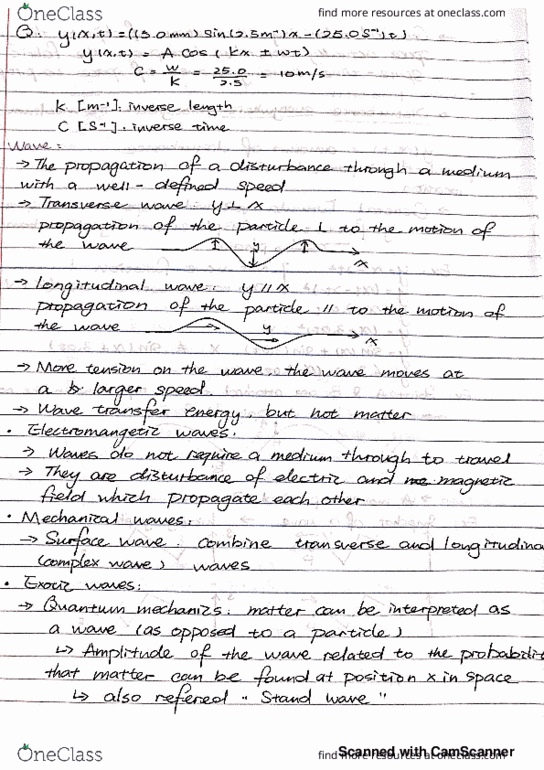 OneClass
find more resources at oneclass.com
Q: y(x,t)=(15.0mm) sin(2.5m⁻¹x-(25.0s⁻¹)t)
y(x,t) = A cos(kx ± wt)
C = w/k = 25.0/2.5 = 10m/s
k [m⁻¹]: inverse length
C [S⁻¹]: inverse time
Wave:
→ The propagation of a disturbance through a medium
with a well-defined speed
→ Transverse wave: y ⊥ x
propagation of the particle ⊥ to the motion of
the wave
y
x
→ Longitudinal wave: y // x
propagation of the particle // to the motion of
the wave
y
x
→ More tension on the wave, the wave moves at
a larger speed.
→ Wave transfer energy, but not matter
• Electromangetic waves:
→ Waves do not require a medium through to travel
→ They are disturbance of electric and magnetic
field which propagate each other
• Mechanical waves:
→ Surface wave: combine transverse and longitudina
(complex wave) waves
• Exotic waves:
→ Quantum mechanics: matter can be interpreted as
a wave (as opposed to a particle)
↳ Amplitude of the wave related to the probabilit
that matter can be found at position x in space
↳ also refered "Stand wave"
OneClass
find more resources at oneclass.com
Scanned with CamScanner